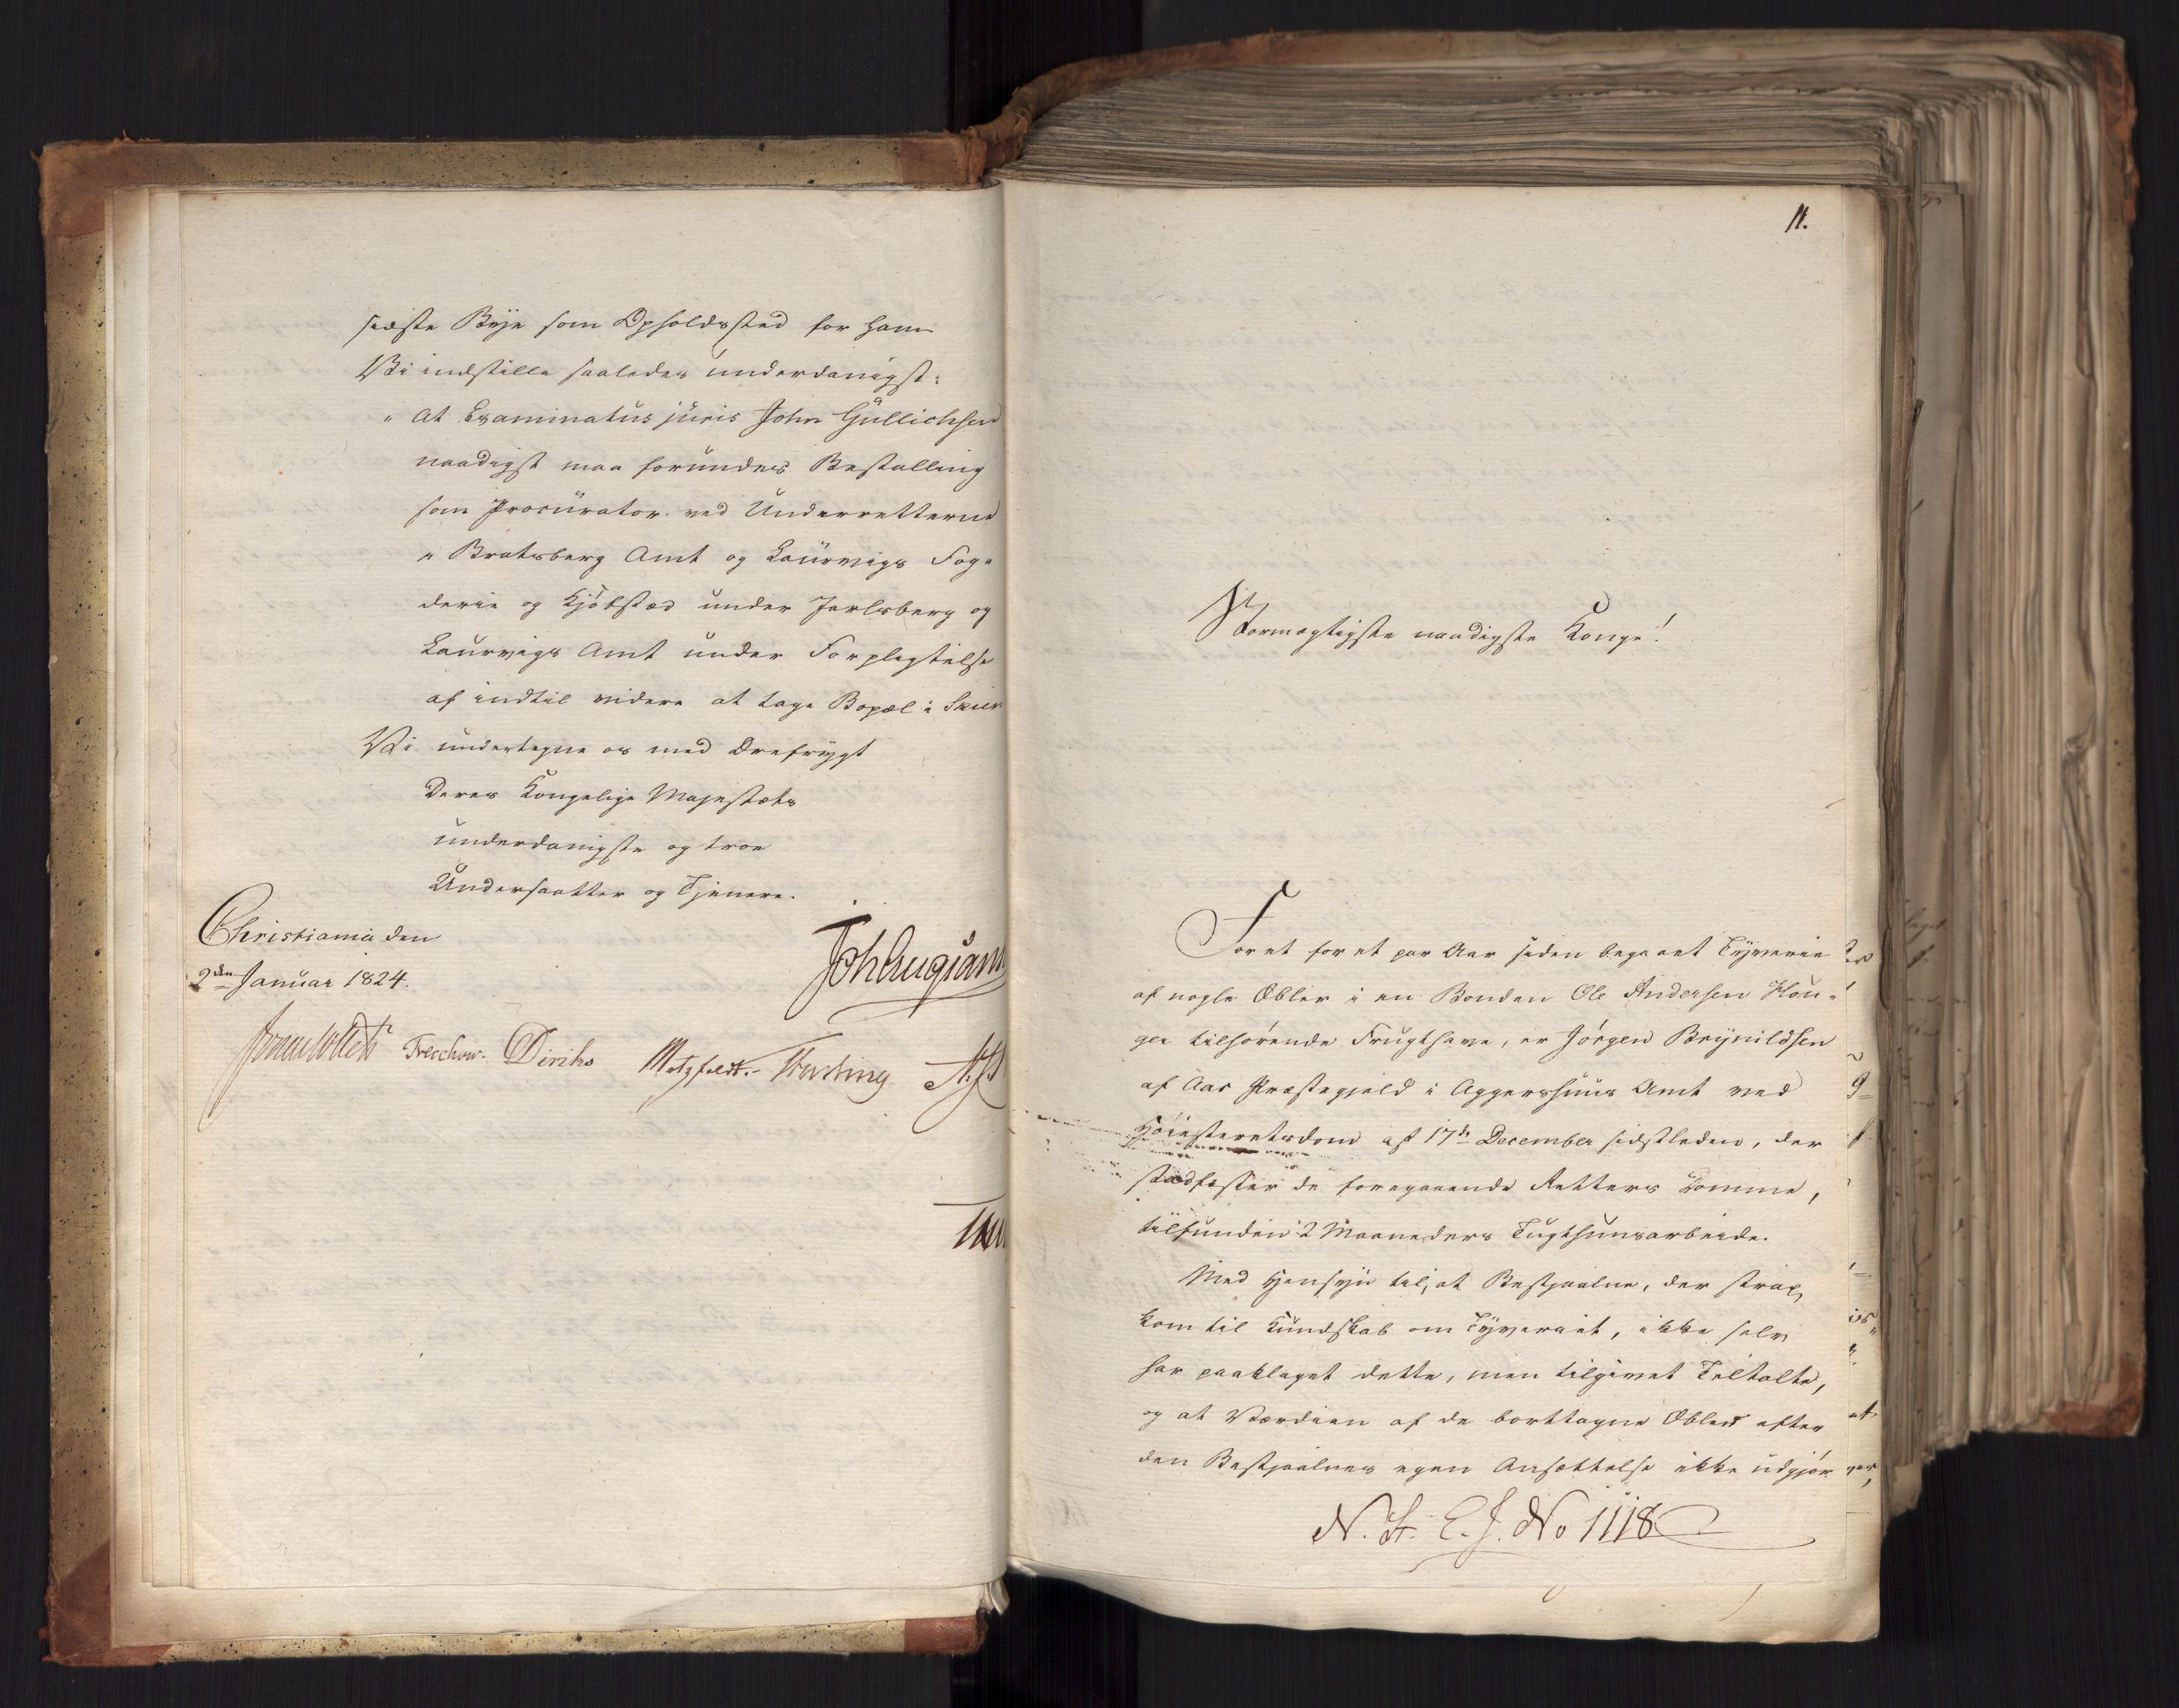 sidste Bye som Opholdssted for ham
Vi indstille saaledes underdanigst:
"At Examinatus juris John Gullichsen
naadigst maa forundes Bestalling
som Procurator ved Underretterne
i Bratsberg Amt og Laurvigs Fog-
derie og Kjöbstæd under Jarlsberg og
Laurvigs Amt under Forpligtelse
af indtil videre at tage Bopæl i Skien
Vi undertegne os med Ærefrygt
Deres Kongelige Majestæts
underdanigste og troe
Undersaatter og Tjenere.
Christiania den
2den Januar 1824.
Joh Aug Sand
Jonas Collett Treschow. Diriks Motzfeldt.
11.
Stormægtigste naadigste Konge!
For et for et par Aar siden begaaet Tyverie
af nogle Æbler i en Bonden Ole Andersen Hou-
gen tilhörende Frugthave, er Jörgen Brynildsen
af Aas Præstegjeld i Aggershuus Amt ved
Höiesteretsdom af 17de December sidstleden, der
stadfæster de foregaaende Retters Domme,
tilfunden 2 Maaneders Tugthuusarbeide.
Med Hensyn til, at Bestjaalne, der strax
kom til Kundskab om Tyveriet, ikke selv
har paaklaget dette, men tilgivet Tiltalte,
og at Værdien af de borttagne Æbler efter
den Bestjaalnes egen Ansættelse ikke udgjör
N. St. E. J. No 1118